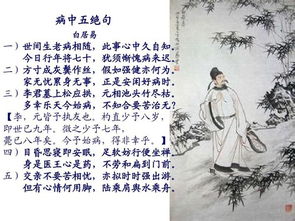 病中五绝句
白居易
一）世间生老病相随，此事心中久自知。
今日行年将七十，犹须惭愧病来迟。
二）方寸成灰鬓作丝，假如强健亦何为。
家无忧累身无事，正是安闲好病时。
三）李君墓上松应拱，元相池头竹尽枯。
多幸乐天今始病，不知合要苦治无？
【李，元皆予执友也。杓直少予八岁，
即世已九年。微之少予七年，
薨已八年矣。今予始病，得非幸乎。】
四）目昏思寝即安眠，足软妨行便坐禅。
身是医王心是药，不劳和扁到门前。
五）交亲不要苦相忧，亦拟时时强出游。
但有心情何用脚，陆乘肩舆水乘舟。